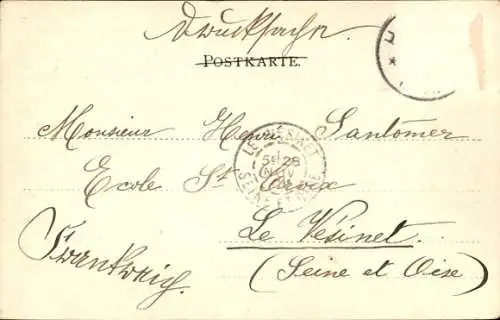 Drucksache.
POSTKARTE.
Monsieur Henri Santomer
Ecole St Croix
Le Vésinet.
(Seine et Oise)
Frankreich.
LE VÉSINET
5E 26
NOV
SEINE ET OISE